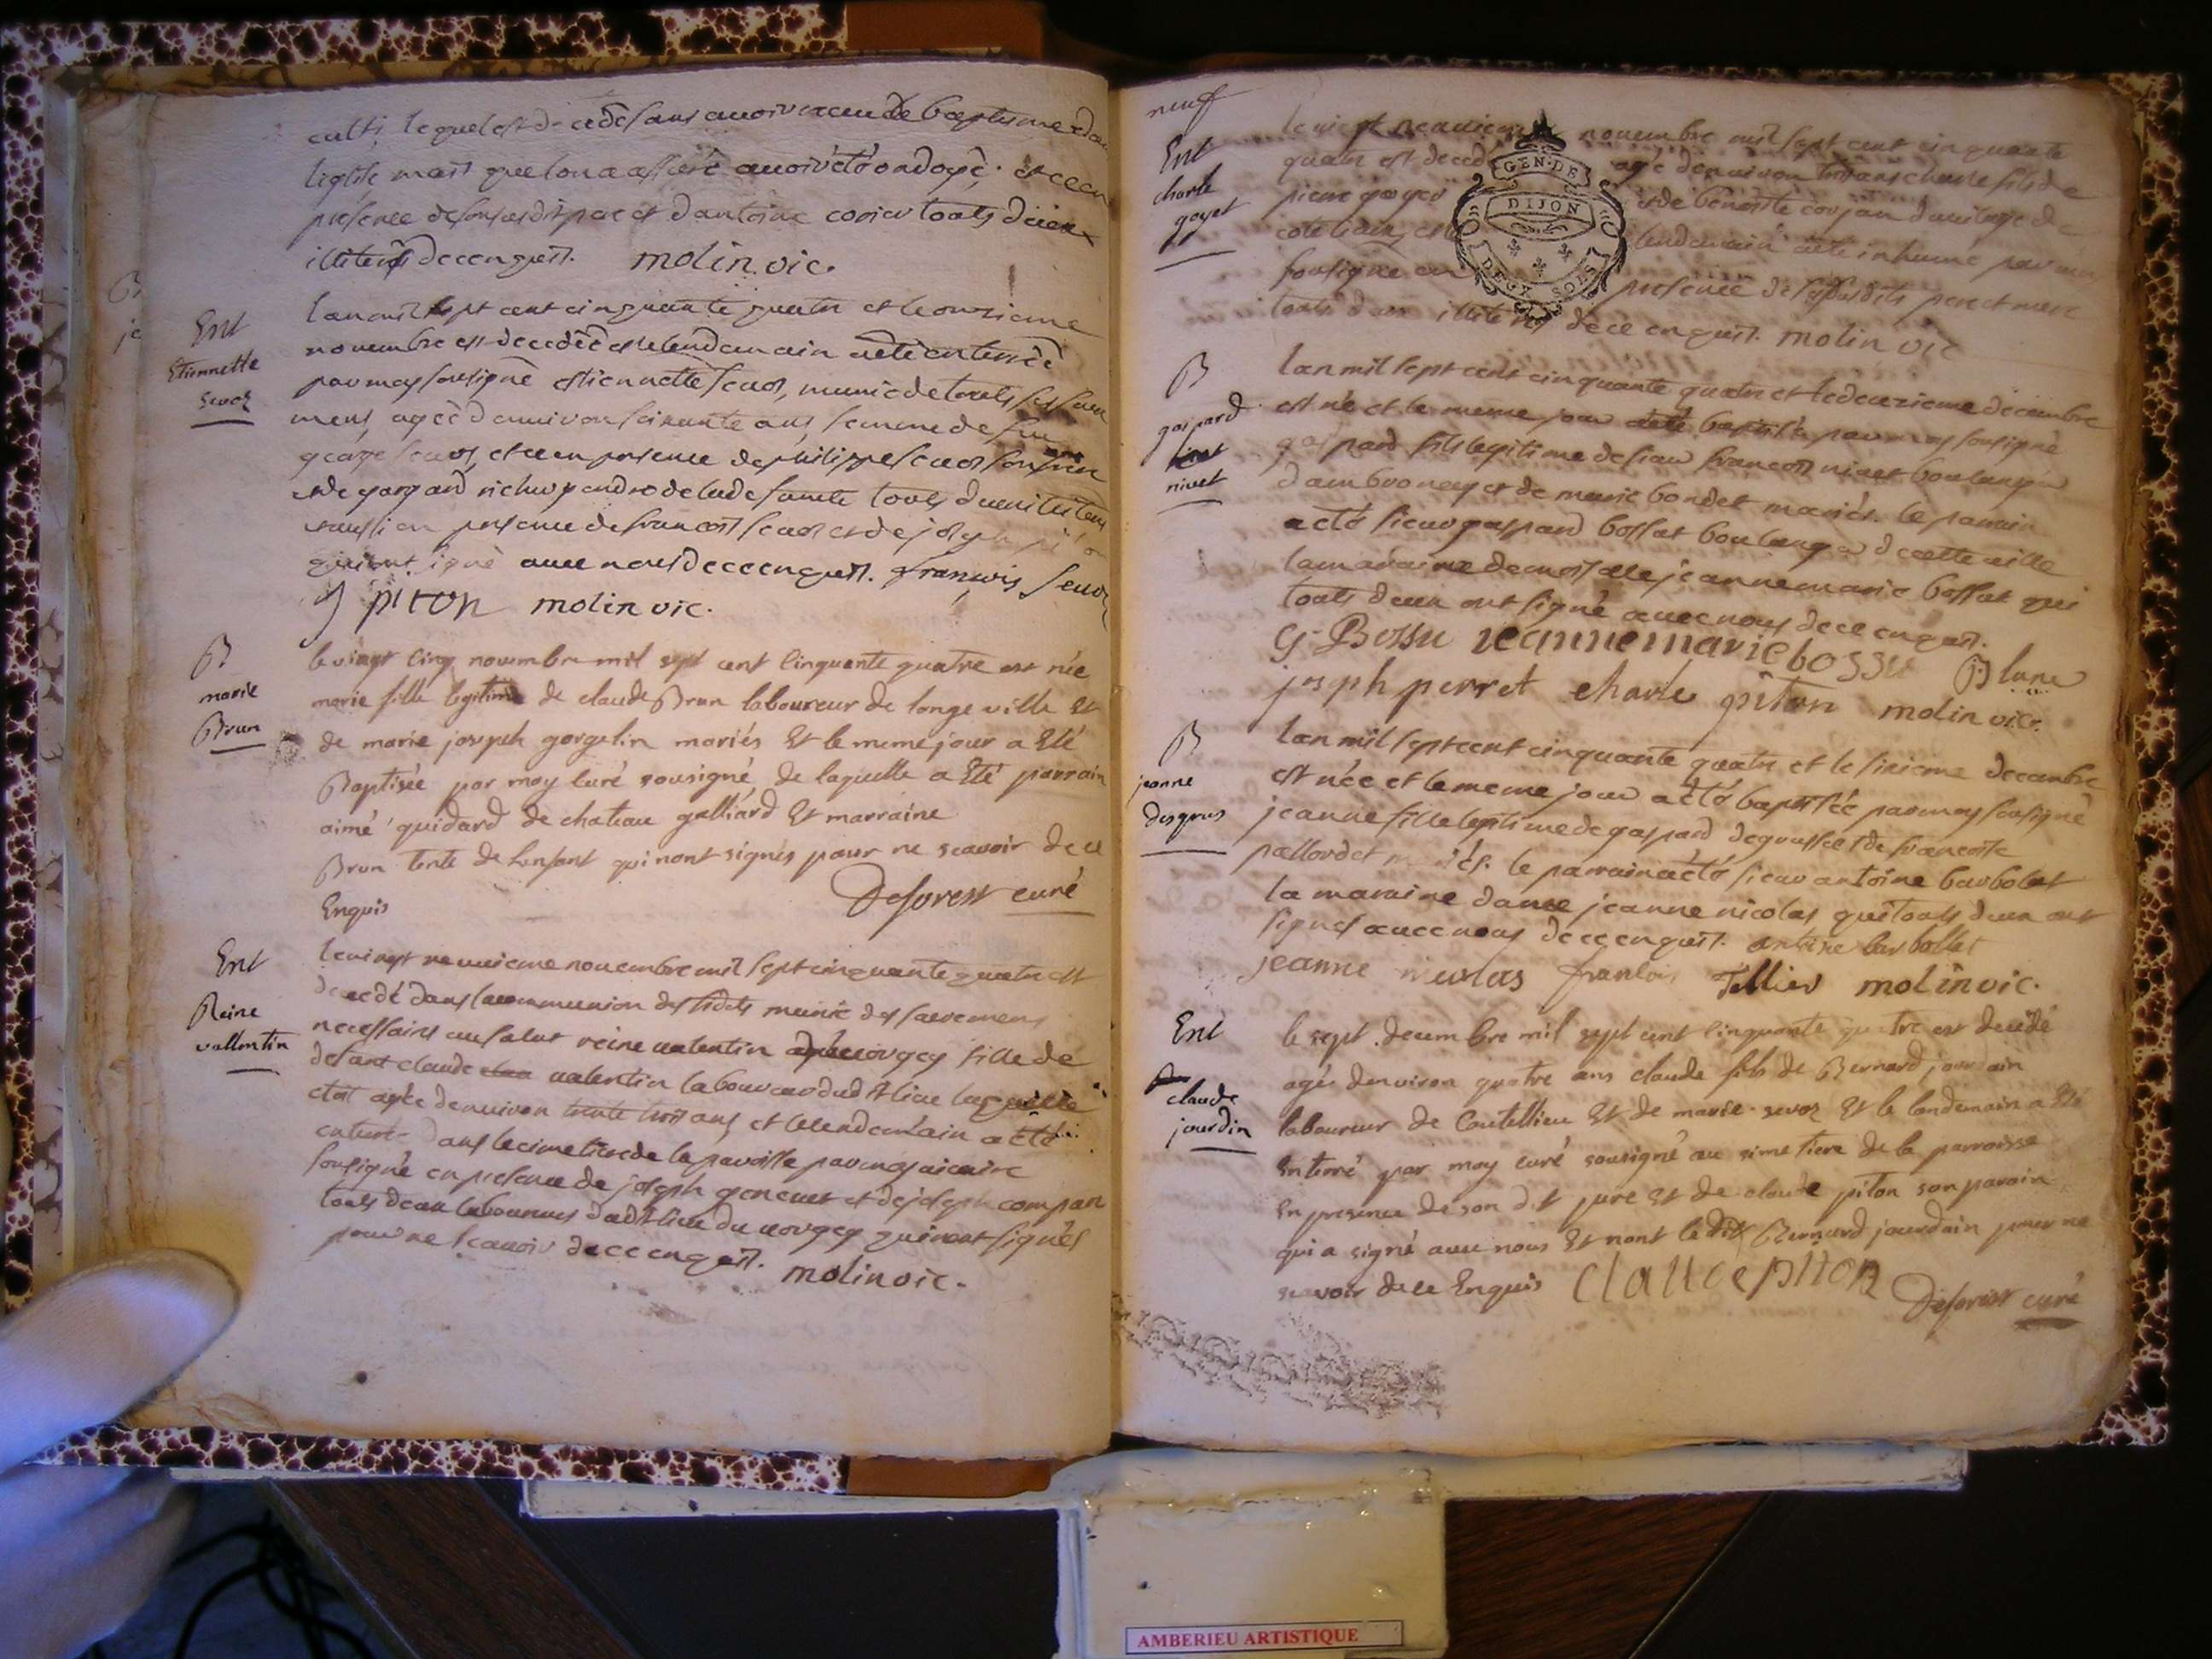 lequel est decedé sans avoir receu le baptisme dans
leglise mais que lon a assuré avoir été ondoyé; et ce en
presence de son susdit pere et d antoine toouts deux
illiterés de ce enquist. molin vic.
Ent
Etiennette
sevoz
lan mil sept cent cinquante quatre et le onzieme
novembre est decedèè et le lendemain a été enterréè
par moy sousigné estiennette sevos, munie de touts ses sacre
mens, ageè d environ soixante ans, femme de feu
sevos, et ce en presence de philippe sevos son frere
et de gaspard gendre de la defuncte touts deux illiteres
et aussi en presence de francois sevos et de joseph
qui ont signé avec nous de ce enquist. françois sevoz
J piton molin vic.
B
marie
Brun
le vingt cinq novembre mil sept cent cinquante quatre est née
marie fille legitime de claude Brun laboureur de longe ville Et
de marie joseph gorgelin mariés Et le meme jour a Eté
Baptisée par moy curé sousigné de laquelle a Eté parrain
aimé guidard de chateau galliard Et marraine
Brun tente de Lenfant qui nont signés pour ne scavoir de ce
Enquis Deforest curé
Ent
Reine
vallentin
le vingt neuvieme novembre mil sept cinquante quatre est
decedé dans la communion des fidels munie des sacremens
necessaires au salut reine valentin fille de
defunt claude valentin laboureur dudit lieu laquelle
etoit agée denviron trente trois ans, et le lendemain a été
enterré dans le cimetiere de la paroisse par moy vicaire
sousigné en presence de joseph genevet et de joseph compan
touts deux laboureurs dudit lieu du vorgey qui nont signés
pour ne scavoir de ce enquist. molin vic.
neuf
Ent
charle
goyet
le vingt neuvieme novembre mil sept cent cinquante
quatre est decedé agé denviron trois ans charle fils de
pierre goyet et de benoiste du vilage de
lendemain a été inhumé par moy
sousigné en presence de ses susdits pere et mere
touts deux illiterés de ce enquist. molin vic
GEN·DE
DIJON
B
gaspard
nivet
lan mil sept cent cinquante quatre et le deuzieme decembre
est né et le meme jour a été baptisé par moy sousigné
gaspard fils legitime de sieur francois nivet boulanger
d ambronay et de marie bondet mariés. le parrain
a été sieur gaspard bossut boulanger de cette ville
la maraine demoiselle jeanne marie bossut qui
touts deux ont signé avec nous de ce enquist.
G Bossu ieanne marie bossu Blane
joseph perret charle piton molin vic.
B
jeanne
desgrus
lan mil sept cent cinquante quatre et le sixieme decembre
est née et le meme jour a été baptisée par moy sousigné
jeanne fille legitime de gaspard et de francoise
mariés. le parrain a été sieur antoine barbolet
la maraine dame jeanne nicolas qui touts deux ont
signés avec nous de ce enquist. antoine barbollet
jeanne nicolas francois Tellier molin vic.
Ent
claude
jourdin
le sept decembre mil sept cent cinquante quatre est decedé
agés denviron quatre ans claude fils de Bernard jourdain
laboureur de Coutellieu Et de marie sevoz Et le landemain a Eté
Enterré par moy curé sousigné au simetiere de la parroisse
En presence de son dit pere Et de claude piton son parain
qui a signé avec nous Et nont le dit Bernard jourdain pour ne
scavoir de ce Enquis Claude piton Deforest curé
AMBERIEU ARTISTIQUE